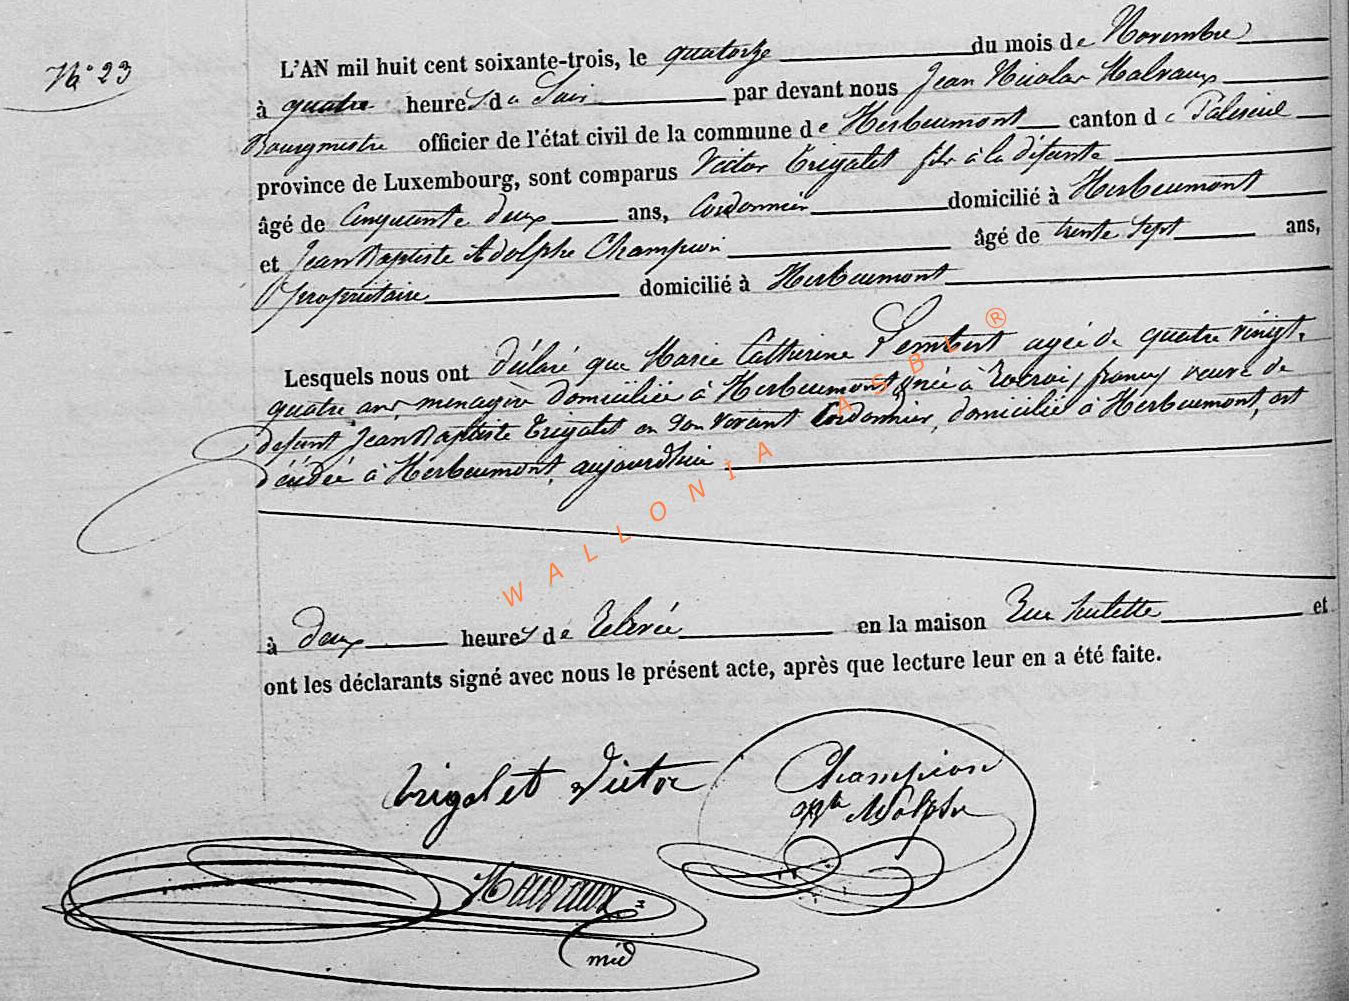 N° 23
L'AN mil huit cent soixante-trois, le quatorze du mois de Novembre
à quatre heures du Soir par devant nous Jean Nicolas Malvaux
Bourgmestre officier de l'état civil de la commune de Herbeumont canton de Paliseul
province de Luxembourg, sont comparus Victor Trigalet fils à la défunte
âgé de Cinquante deux ans, Cordonnier domicilié à Herbeumont
et Jean Baptiste Adolphe Champion âgé de trente sept ans,
Propriétaire domicilié à Herbeumont
Lesquels nous ont déclaré que Marie Catherine Pembert agée de quatre vingt
quatre ans, menagère domiciliée à Herbeumont, née à Rocroi, france, veuve de
défunt Jean Baptiste Trigalet en son vivant Cordonnier, domicilié à Herbeumont, est
décédée à Herbeumont, aujourd'hui
à deux heures de relevée en la maison Rue hulette et
ont les déclarants signé avec nous le présent acte, après que lecture leur en a été faite.
Trigalet Victor
Champion
Adolphe
Malvaux
WALLONIA ASBL ®